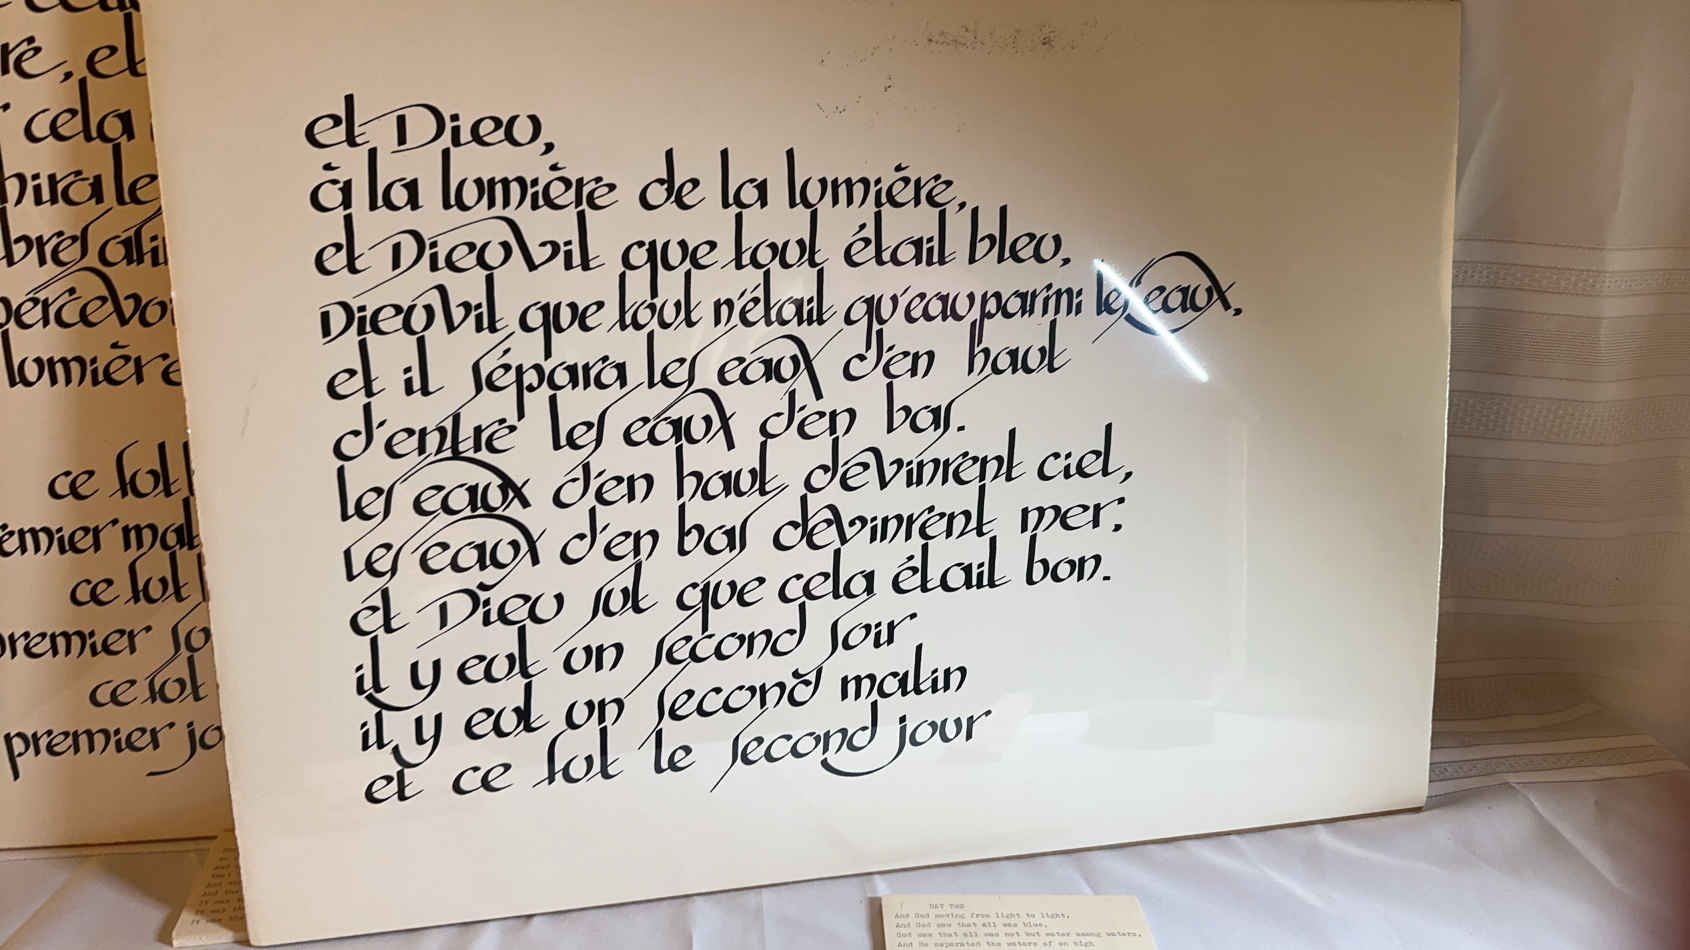 et Dieu,
à la lumière de la lumière,
et Dieu vit que tout était bleu,
Dieu vit que tout n'était qu'eau parmi les eaux,
et il sépara les eaux d'en haut
d'entre les eaux d'en bas.
les eaux d'en haut devinrent ciel,
les eaux d'en bas devinrent mer;
et Dieu sut que cela était bon.
il y eut un second soir
il y eut un second matin
et ce fut le second jour
ré, et
cela
lumière
ce fut
ce fut
premier so
ce fut
premier jo
DAY TWO
And God moving from light to light,
And God saw that all was blue,
God saw that all was not but water among waters,
And He separated the waters of on high